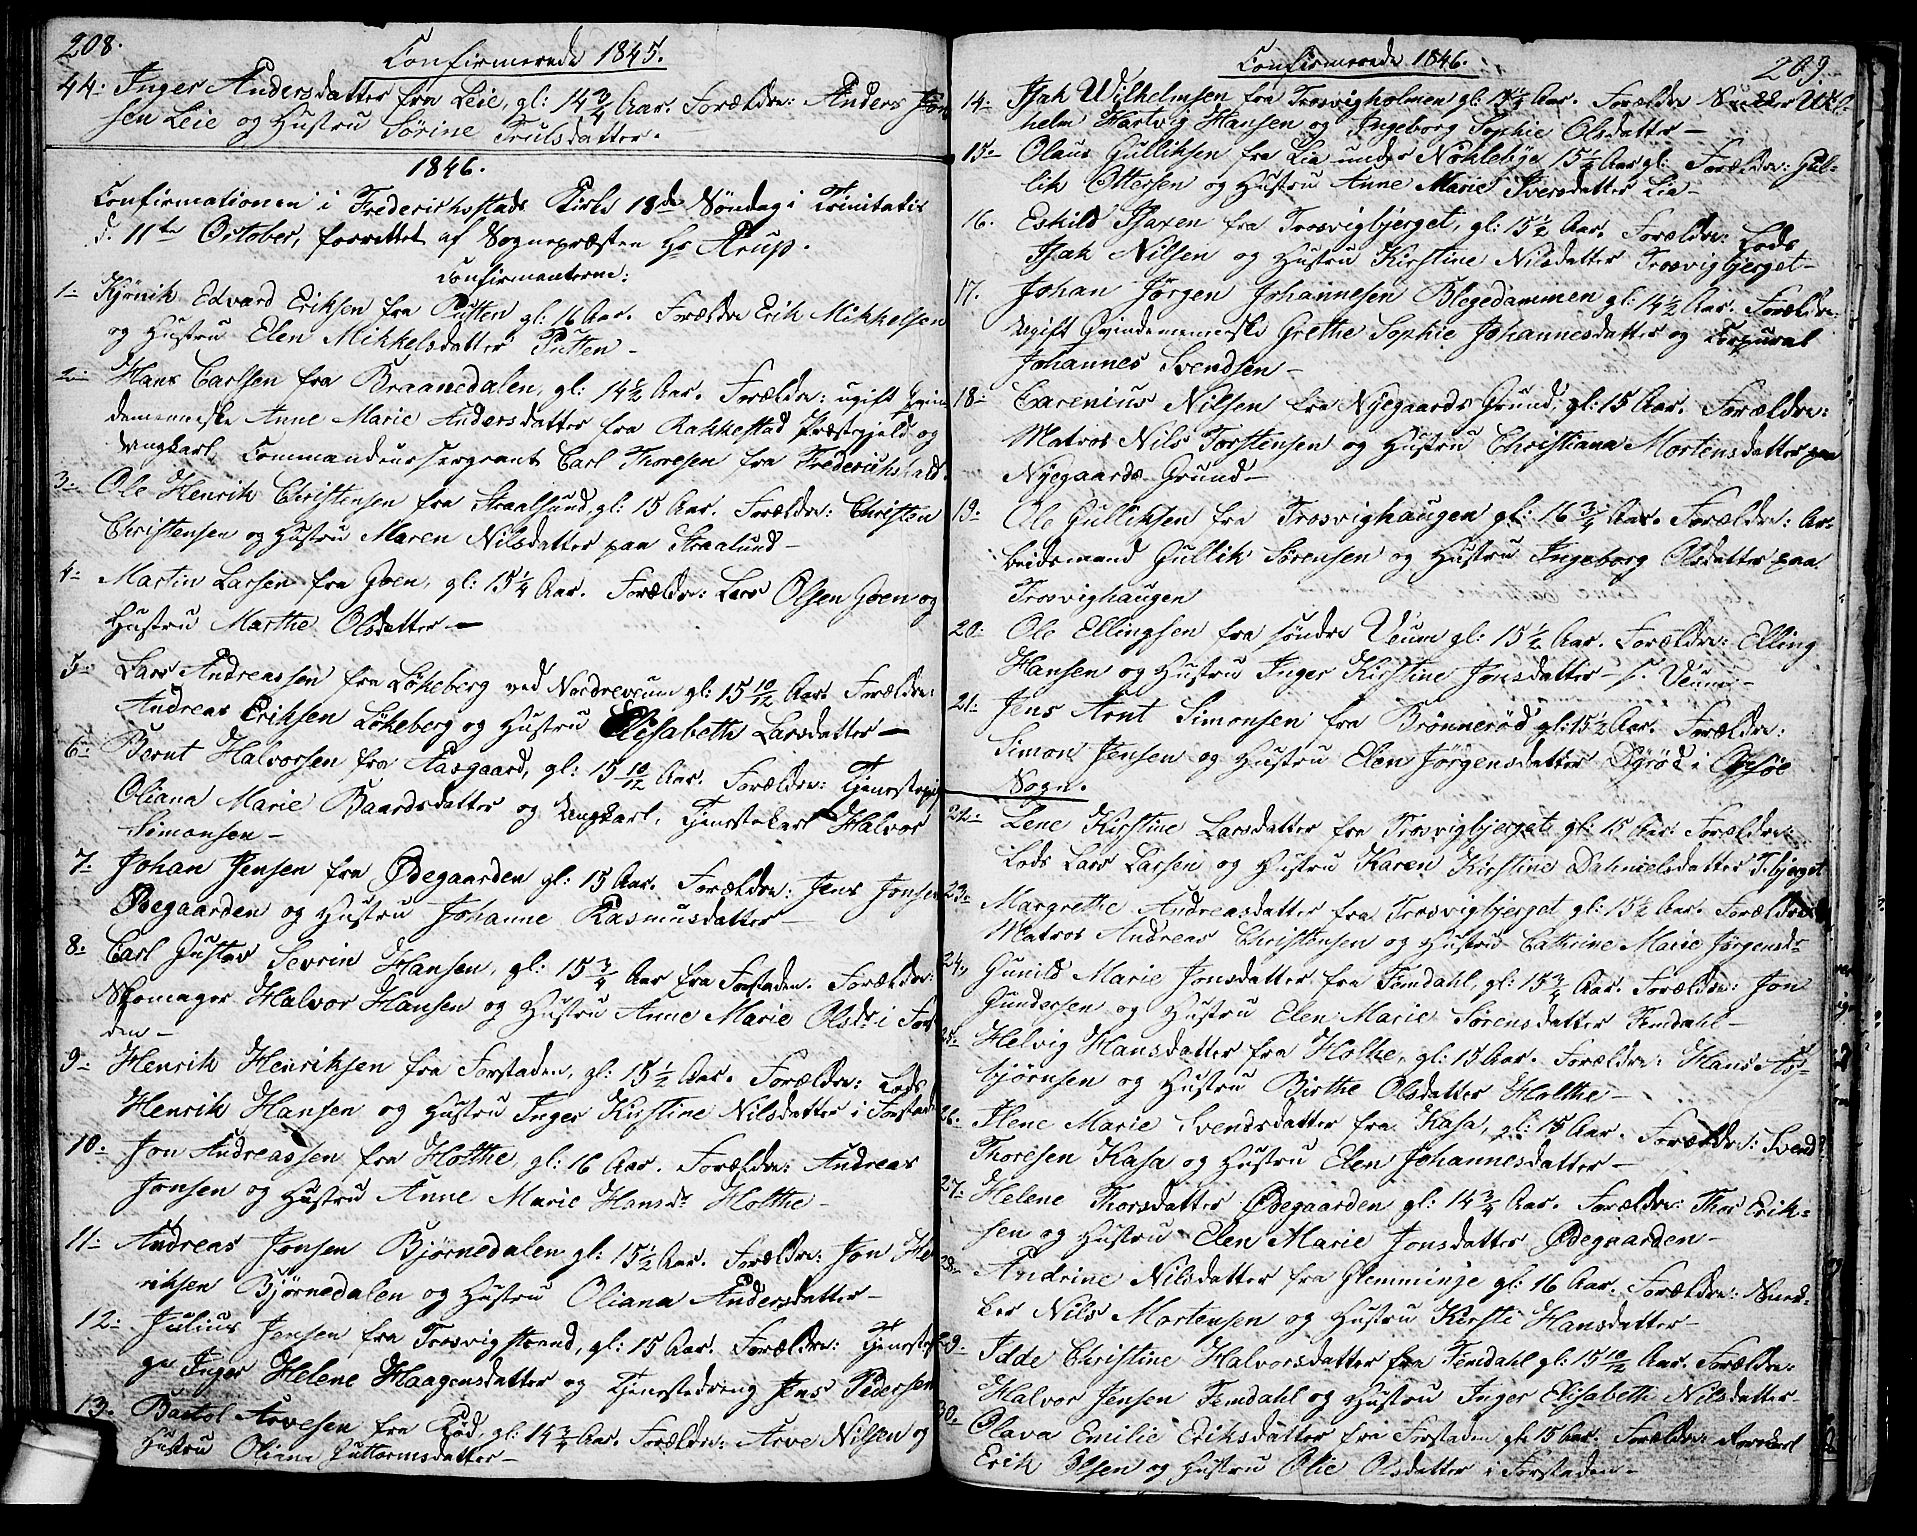 208.
Confirmerede 1845.
44. Inger Andersdatter fra Leie, gl: 14 3/4 Aar. Forældre: Anders Jon
sen Leie og Hustru Sørine Trulsdatter.
1846.
Confirmationen i Frederichsstads Kirke 18de Søndag i Trinitatis
d. 11te October, forrettet af Sognepræsten Hr Arup.
Confirmanterne:
1. Kjønik Edvard Eriksen fra Putten gl: 16 Aar. Forældre Erik Mikkelsen
og Hustru Elen Mikkelsdatter Putten -
2. Hans Carlsen fra Braanedalen, gl: 14 1/2 Aar. Forældre: ugift Qvin
demenneske Anne Marie Andersdatter fra Rakkestad Præstegjeld og
Ungkarl, Commandeursergeant Carl Thoresen fra Frederichstad.
3. Ole Henrik Christensen fra Straalsund, gl: 15 Aar. Forældre: Christen
Christensen og Hustru Maren Nilsdatter paa Straalsund -
4. Martin Larsen fra Goen, gl: 15 1/4 Aar. Forældre: Lars Olsen Goen og
Hustru Marthe Olsdatter -
5. Lars Andreassen fra Løkeberg ved Nordreveum gl: 15 10/12 Aar. Forældre:
Andreas Eriksen Løkeberg og Hustru Elisabeth Larsdatter -
6. Bernt Halvorsen fra Aasgaard, gl: 15 10/12 Aar. Forældre: Tjenestepige
Oliana Marie Baardsdatter og Ungkarl, Tjenestekarl Halvor
Simonsen -
7. Johan Jensen fra Ødegaarden gl: 15 Aar. Forældre: Jens Jonsen
Ødegaarden og Hustru Johanne Rasmusdatter -
8. Carl Gustav Sevrin Hansen, gl: 15 3/4 Aar fra Forstaden. Forældre:
Skomager Halvor Hansen og Hustru Anne Marie Olsdr i Forsta
den -
9. Henrik Henriksen fra Forstaden, gl: 15 1/2 Aar. Forældre: Lods
Henrik Hansen og Hustru Inger Kirstine Nilsdatter i Forstad
10. Jon Andreassen fra Holthe, gl: 16 Aar. Forældre: Andreas
Jonsen og Hustru Anne Marie Hansdr Holthe -
11. Andreas Jonsen Bjørnedalen gl: 15 1/2 Aar. Forældre: Jon He
riksen Bjørnedalen og Hustru Oliana Andersdatter -
12. Julius Jensen fra Trosvigstrand, gl: 15 Aar. Forældre: Tjenestepi
ge Inger Helene Haagensdatter og Tjenestedreng Jens Pedersen
13. Bartol Arvesen fra Rød, gl: 14 3/4 Aar. Forældre: Arve Nilsen og
Hustru Oliana Guttormsdatter -
Confirmerede 1846.
209.
14. Isak Wilhelmsen fra Trosvigholmen gl: 15 1/4 Aar. Forældre Snedker Wil
helm Hartvig Hansen og Ingeborg Sophie Olsdatter -
15. Olaus Gulliksen fra Lie under Nøklebye 15 1/2 Aar gl: Forældre: Gul-
lik Ottersen og Hustru Anne Marie Iversdatter Lie -
16. Eskild Isaxen fra Trosvigbjerget, gl: 15 1/2 Aar. Forældre: Lods
Isak Nilsen og Hustru Kirstine Nilsdatter Trosvigbjerget -
17. Johan Jørgen Johannesen Blegedammen gl: 14 1/2 Aar. Forældre:
Ugift Qvindemenneske Grethe Sophie Johannesdatter og Korpural
Johannes Svendsen -
18. Carenius Nilsen fra Nyegaards Grund, gl: 15 Aar. Forældre:
Matros Nils Torstensen og Hustru Christiana Mortensdatter paa
Nyegaards Grund -
19. Ole Gulliksen fra Trosvighaugen gl: 16 3/4 Aar. Forældre: Ar-
beidsmand Gullik Sørensen og Hustru Ingeborg Olsdatter paa
Trosvighaugen
20. Ole Ellingsen fra søndre Veum gl: 15 1/2 Aar. Forældre: Elling
Hansen og Hustru Inger Kirstine Jonsdatter - s. Veum -
21. Jens Arnt Simonsen fra Brønnerød gl: 15 1/2 Aar. Forældre:
Simon Jensen og Hustru Elen Jørgensdatter i Onsøe
Sogn.
22. Lene Kirstine Larsdatter fra Trosvigbjerget gl: 15 Aar. Forældre:
Lods Lars Larsen og Hustru Karen Kirstine Dahnielsdatter T.bjerget
23. Margrethe Andreasdatter fra Trosvigbjerget gl: 15 1/2 Aar. Forældre
Matros Andreas Christensen og Hustru Cathrine Marie Jørgensdr
24. Gunild Marie Jonsdatter fra Femdahl, gl: 15 3/4 Aar. Forældre: Jon
Gundersen og Hustru Elen Marie Sørensdatter Femdahl -
25. Helvig Hansdatter fra Holthe, gl: 15 Aar. Forældre: Hans As-
bjørnsen og Hustru Birthe Olsdatter Holthe -
26. Ilene Marie Svendsdatter fra Kasa, gl: 15 Aar. Forældre: Svend
Thoresen Kasa og Hustru Elen Johannesdatter -
27. Helene Thorsdatter Ødegaarden gl: 14 3/4 Aar. Forældre: Thor Erik-
sen og Hustru Elen Marie Jonsdatter Ødegaarden -
28. Andrine Nilsdatter fra Glemminge gl: 16 Aar. Forældre: Sned-
ker Nils Mortensen og Hustru Kirsti Hansdatter -
29. Idde Christine Halvorsdatter fra Femdahl gl: 15 10/12 Aar. Forældre:
Halvor Jensen Femdahl og Hustru Inger Elisabeth Nilsdatter -
30. Olava Emilie Eriksdatter fra Forstaden gl: 15 Aar. Forældre:
Erik Olsen og Hustru Olie Olsdatter i Forstaden -